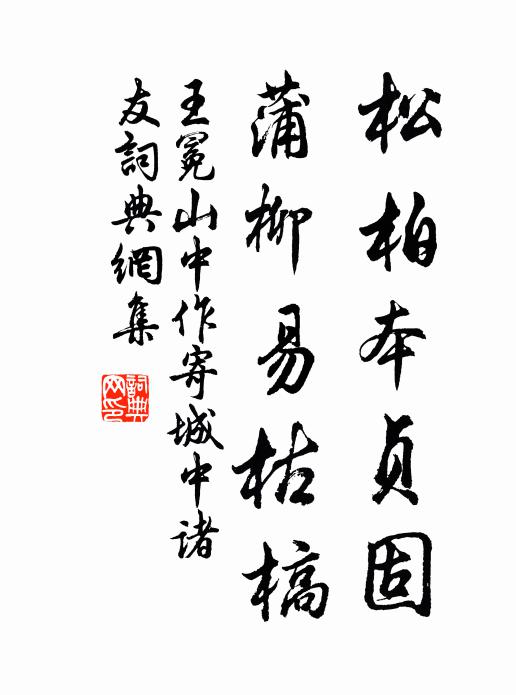 松柏本貞固
蒲柳易枯槁
王冕山中作寄城中诸
友詞典網集
詞典
网印